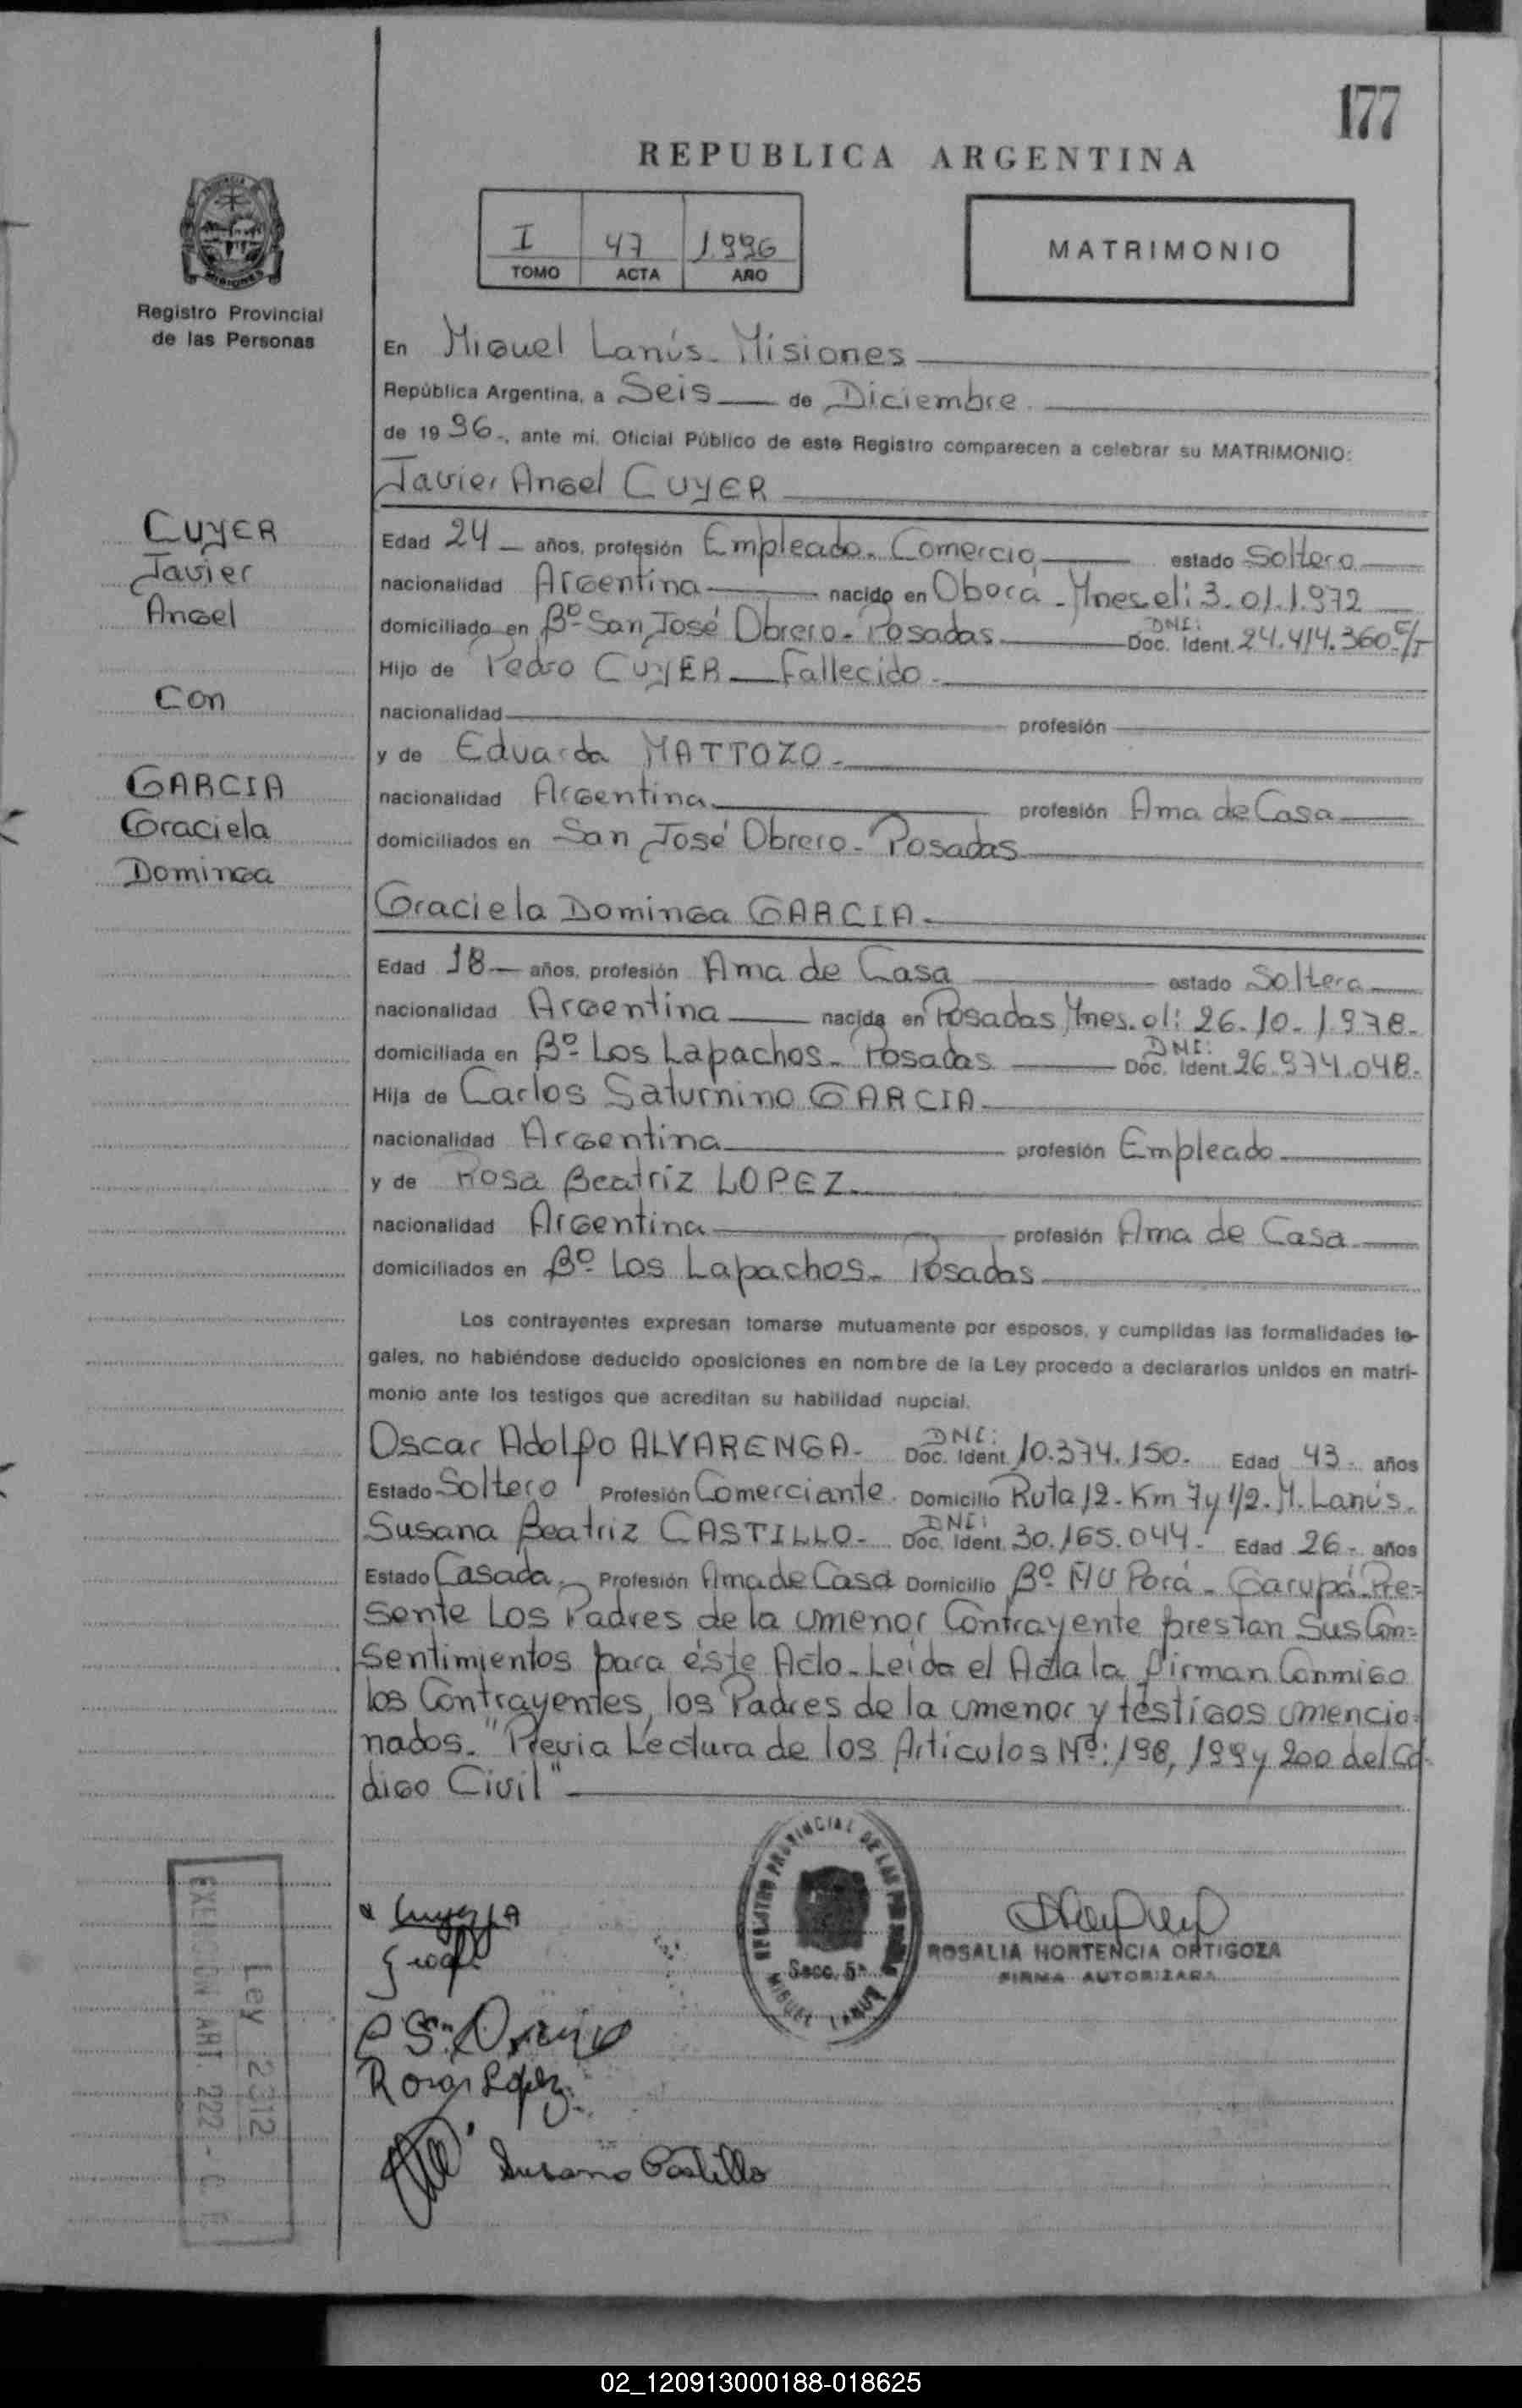 177
REPUBLICA ARGENTINA
I 47 1.996
TOMO ACTA AÑO
MATRIMONIO
Registro Provincial
de las Personas
En Miguel Lanús - Misiones
República Argentina, a Seis de Diciembre.
de 1996-, ante mí, Oficial Público de este Registro comparecen a celebrar su MATRIMONIO:
Javier Angel CUYER
CUYER
Javier
Angel
Con
GARCIA
Graciela
Dominga
Edad 24 años, profesión Empleado - Comercio estado Soltero
nacionalidad Argentina nacido en Oberá - Mnes. el: 3.01.1.972
domiciliado en Bº San José Obrero - Posadas DNI: Doc. Ident. 24.414.360 C/T
Hijo de Pedro CUYER Fallecido.
nacionalidad profesión
y de Eduarda MATTOZO.
nacionalidad Argentina profesión Ama de Casa
domiciliados en San José Obrero - Posadas
Graciela Dominga GARCIA.
Edad 18 años, profesión Ama de Casa estado Soltera
nacionalidad Argentina nacida en Posadas Mnes. el: 26.10.1.978.
domiciliada en Bº Los Lapachos - Posadas DNI: Doc. Ident. 26.974.048.
Hija de Carlos Saturnino GARCIA
nacionalidad Argentina profesión Empleado
y de Rosa Beatriz LOPEZ
nacionalidad Argentina profesión Ama de Casa
domiciliados en Bº Los Lapachos - Posadas
Los contrayentes expresan tomarse mutuamente por esposos, y cumplidas las formalidades le-
gales, no habiéndose deducido oposiciones en nombre de la Ley procedo a declararlos unidos en matri-
monio ante los testigos que acreditan su habilidad nupcial.
Oscar Adolfo ALVARENGA - DNI: Doc. Ident. 10.374.150. Edad 43 - años
Estado Soltero Profesión Comerciante. Domicilio Ruta 12 - Km 7 y 1/2. M. Lanús.
Susana Beatriz CASTILLO - DNI: Doc. Ident. 30.165.044. Edad 26 - años
Estado Casada. Profesión Ama de Casa Domicilio Bº ÑU Porá - Garupá - Pre=
sente Los Padres de la menor Contrayente prestan Sus Con=
sentimientos para éste Acto - Leida el Acta la firman Conmigo
los Contrayentes, los Padres de la menor y testigos mencio=
nados. "Previa Lectura de los Artículos Nº: 198, 199 y 200 del Có
digo Civil"
REGISTRO PROVINCIAL DE LAS PERSONAS
Secc. 5ª
MIGUEL LANUS
ROSALIA HORTENCIA ORTIGOZA
FIRMA AUTORIZADA
Rosa López
Susana Castillo
Ley 2312
EXENCION ART. 222 - C. F.
02_120913000188-018625